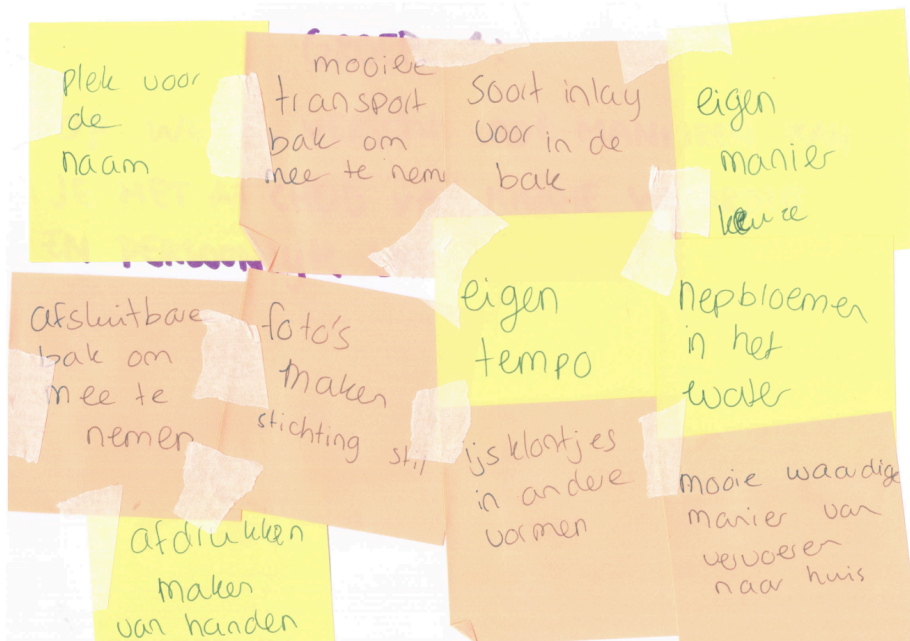 plek voor
de
naam
mooiee
transport
bak om
mee te nem
soort inlay
voor in de
bak
eigen
manier
keuze
afsluitbare
bak om
mee te
nemen
foto's
maken
stichting still
eigen
tempo
nepbloemen
in het
water
ijsklontjes
in andere
vormen
mooie waardige
manier van
vervoeren
naar huis
afdrukken
maken
van handen